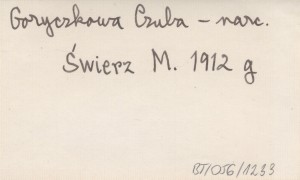 Goryczkowa Czuba - narc.
Świerz M. 1912 g
BJ/OJG/1233